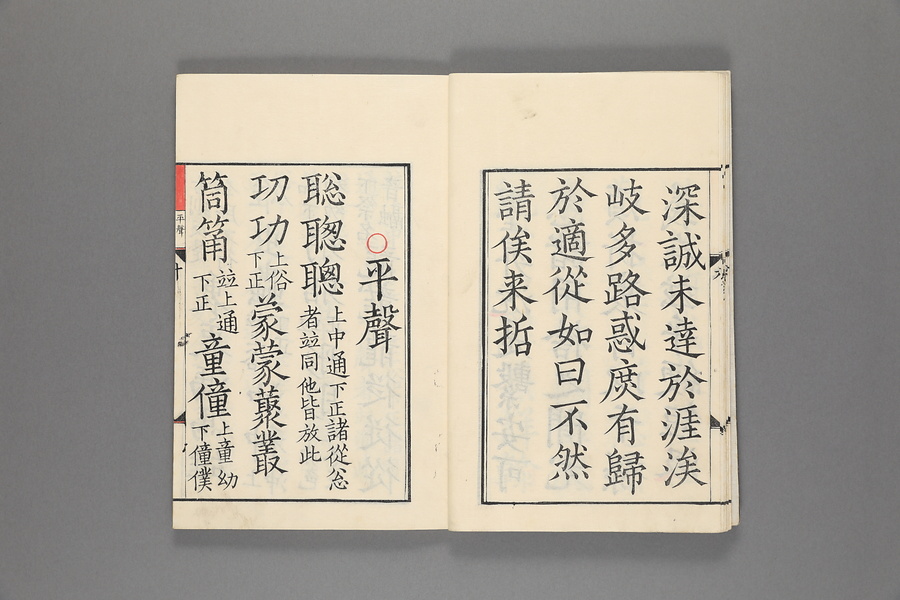 深誠未達於涯涘
岐多路惑庶有歸
於適從如曰不然
請俟来哲
平聲
聡聦聰上中通下正諸從忩者竝同他皆放此
㓛功上俗下正䝉蒙藂叢
筒筩竝上通下正童僮上童幼下僮僕
平聲
十